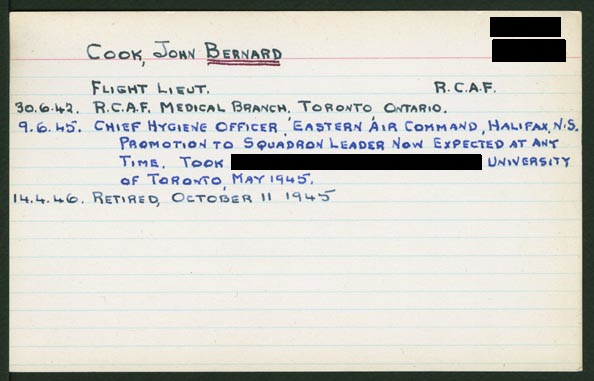 Cook, John Bernard
Flight Lieut. R.C.A.F.
30.6.42. R.C.A.F. Medical Branch, Toronto Ontario.
9.6.45. Chief Hygiene Officer, Eastern Air Command, Halifax, N.S.
Promotion to Squadron Leader now expected at any
time. Took University
of Toronto, May 1945.
14.4.46. Retired, October 11 1945